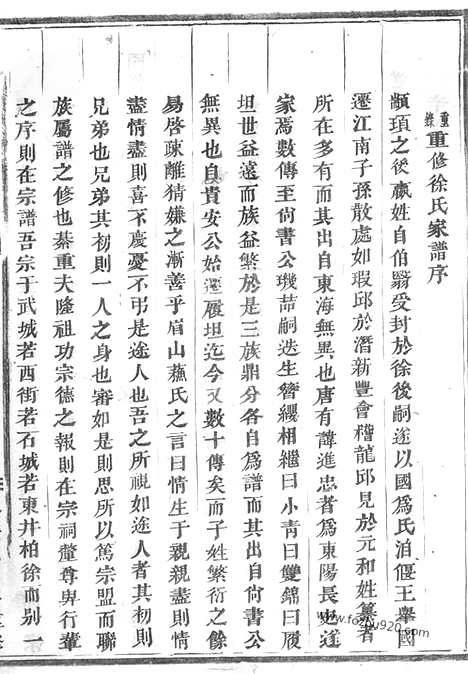 重錄
重修徐氏家譜序
顓頊之後嬴姓自伯翳受封於徐後嗣遂以國爲氏洎偃王舉國
遷江南子孫散處如瑕邱於潛新豐會稽龍邱見於元和姓纂者
所在多有而其出自東海無異也唐有諱進忠者爲東陽長史遂
家焉數傳至尙書公璣喆嗣迭生簪纓相繼曰小青曰雙錦曰履
坦世益遠而族益繁於是三族鼎分各自爲譜而其出自尙書公
無異也自貴安公始遷履坦迄今又數十傳矣而子姓繁衍之餘
易啓疎離猜嫌之漸善乎眉山蘓氏之言曰情生于親親盡則情
盡情盡則喜不慶憂不弔是途人也吾之所視如途人者其初則
兄弟也兄弟其初則一人之身也審如是則思所以篤宗盟而聯
族屬譜之修也綦重夫隆祖功宗德之報則在宗祠釐尊卑行輩
之序則在宗譜吾宗于武城若西街若石城若東井柏徐而别一
www.fozu920.com